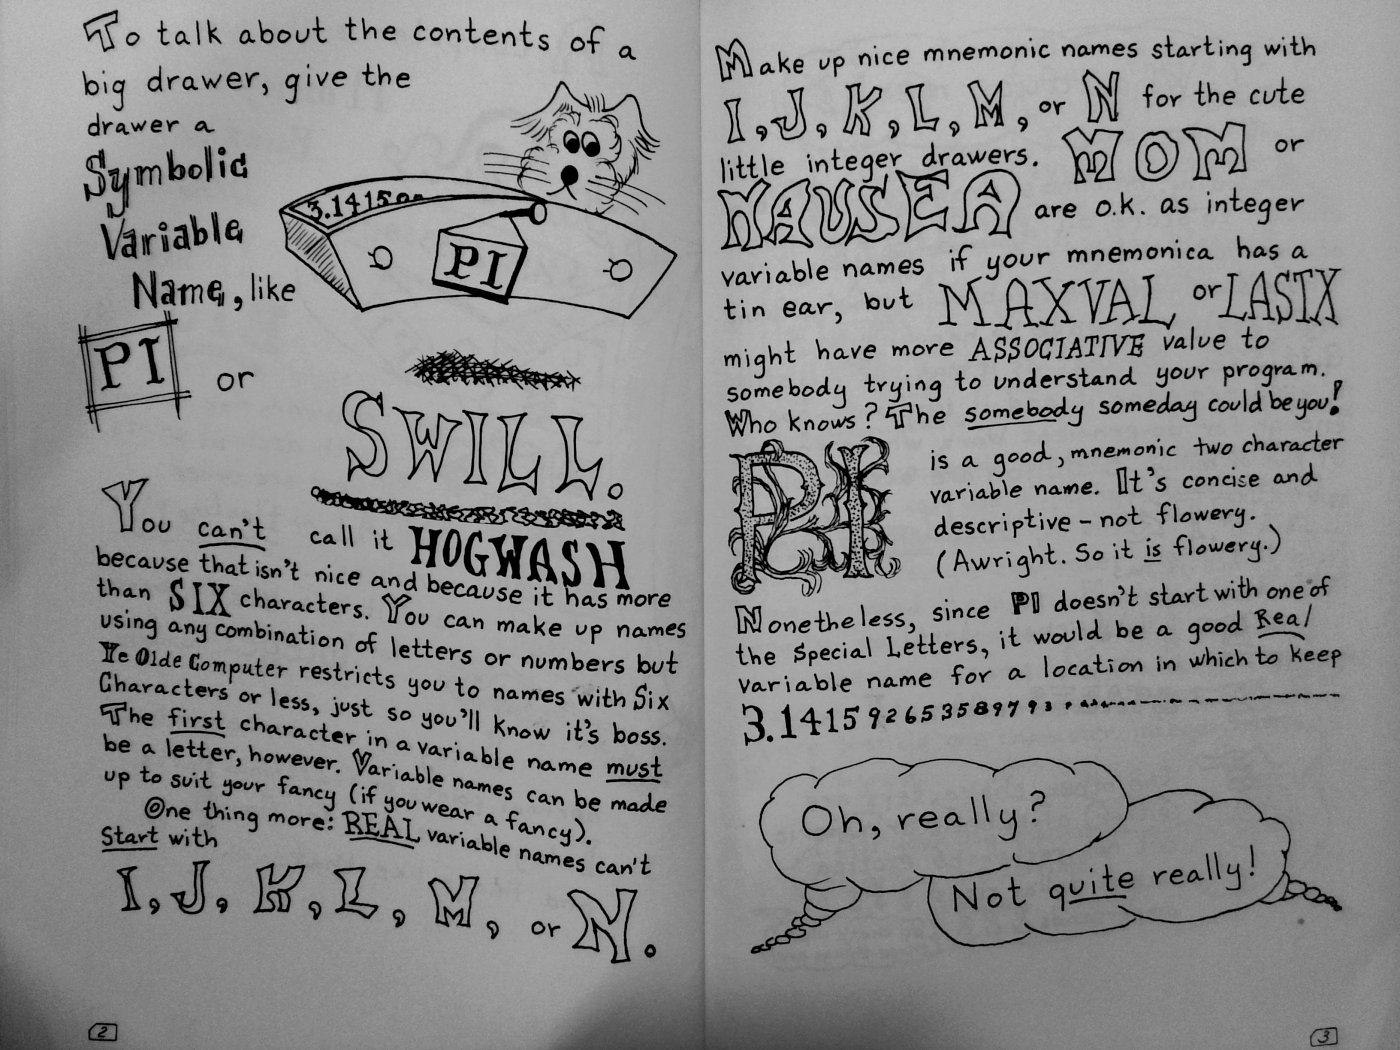 To talk about the contents of a
big drawer, give the
drawer a
Symbolic
Variable
Name, like
3.1415
PI
PI
or
SWILL.
You can't call it HOGWASH
because that isn't nice and because it has more
than SIX characters. You can make up names
using any combination of letters or numbers but
Ye Olde Computer restricts you to names with Six
Characters or less, just so you'll know it's boss.
The first character in a variable name must
be a letter, however. Variable names can be made
up to suit your fancy (if you wear a fancy).
One thing more: REAL variable names can't
Start with
I, J, K, L, M, or N.
2
Make up nice mnemonic names starting with
I, J, K, L, M, or N for the cute
little integer drawers. MOM or
NAUSEA are o.k. as integer
variable names if your mnemonica has a
tin ear, but MAXVAL or LASTX
might have more ASSOCIATIVE value to
somebody trying to understand your program.
Who knows? The somebody someday could be you!
PI is a good, mnemonic two character
variable name. It's concise and
descriptive - not flowery.
(Awright. So it is flowery.)
Nonetheless, since PI doesn't start with one of
the Special Letters, it would be a good Real
variable name for a location in which to keep
3.14159265358979
Oh, really?
Not quite really!
3